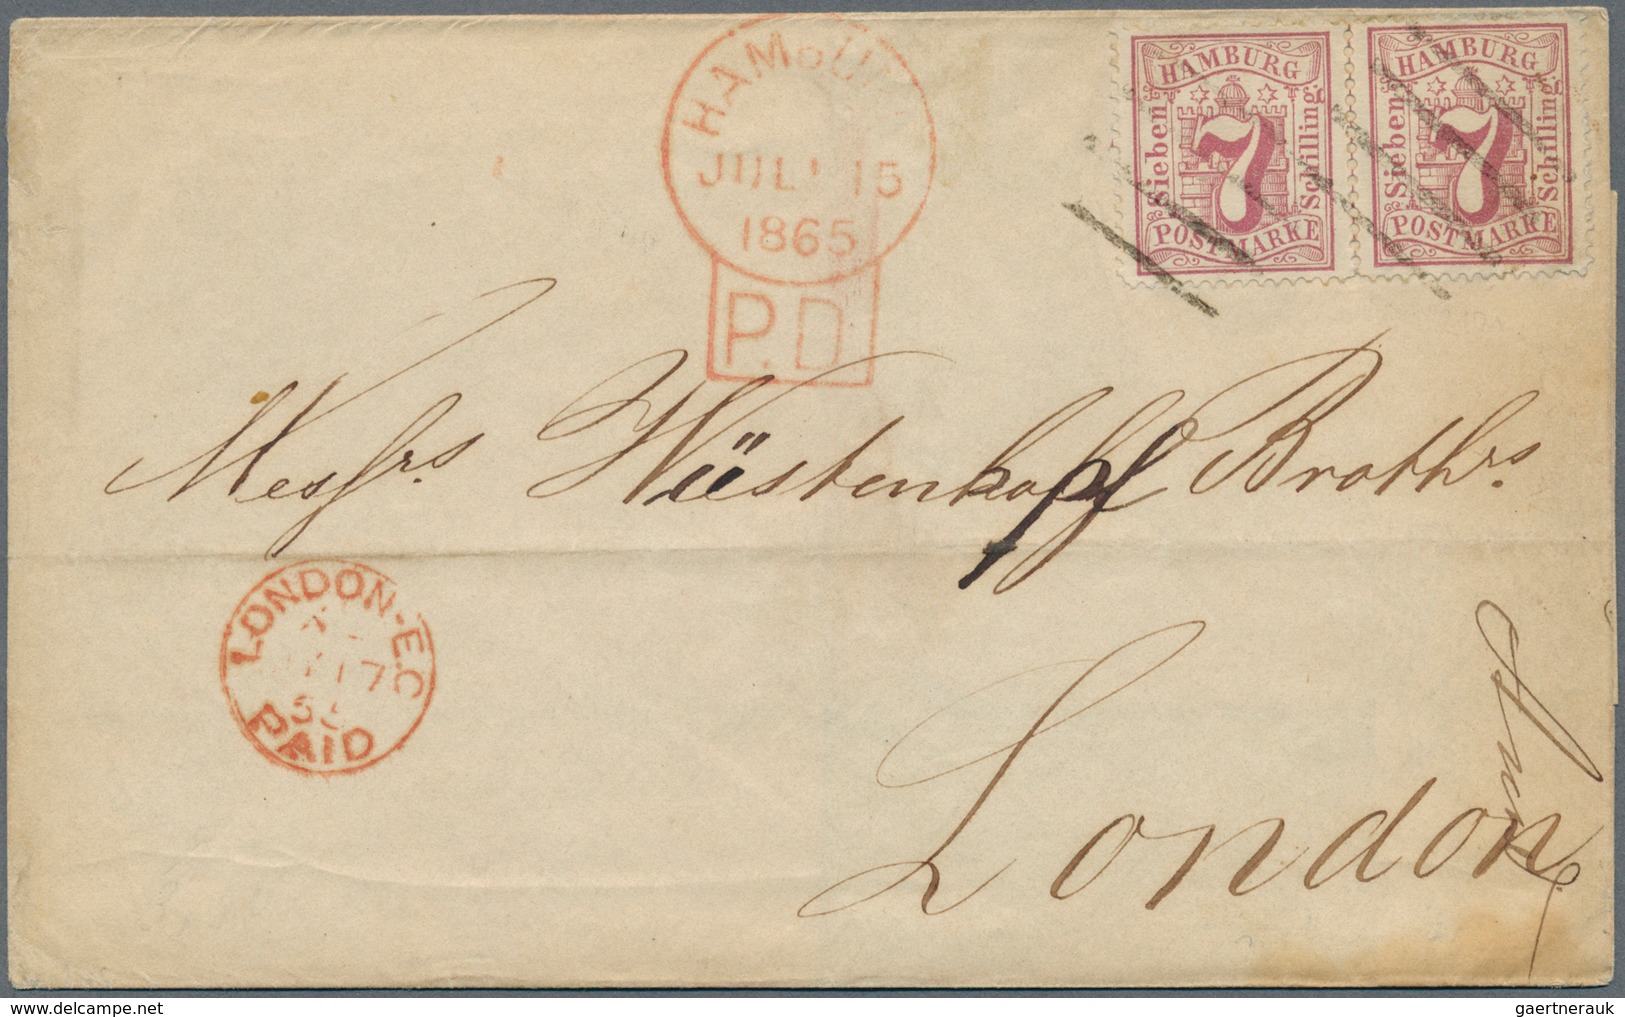 HAMBURG
JULI 15
1865
P.D.
HAMBURG
Sieben
7
Schilling.
POSTMARKE
HAMBURG
Sieben
7
Schilling.
POSTMARKE
Messrs. Wüstenkopf Brothrs.
LONDON-E.C
17
PAID
London.
gaertnerauk